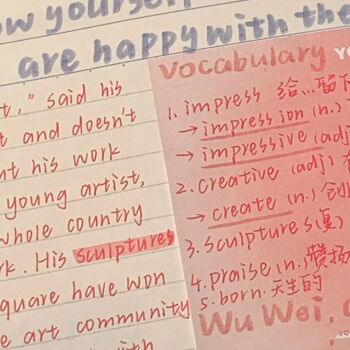 ow yourself
are happy with the
t," said his
t and doesn't
nt his work
young artist,
whole country
rk. His sculptures
quare have won
e art community
with
Vocabulary
1. impress 给…留下
→ impression (n.)
→ impressive (adj)
2. creative (adj)
→ create (n.) 创
3. sculptures (复)
4. praise (n.) 赞扬
5. born. 天生的
Wu Wei,